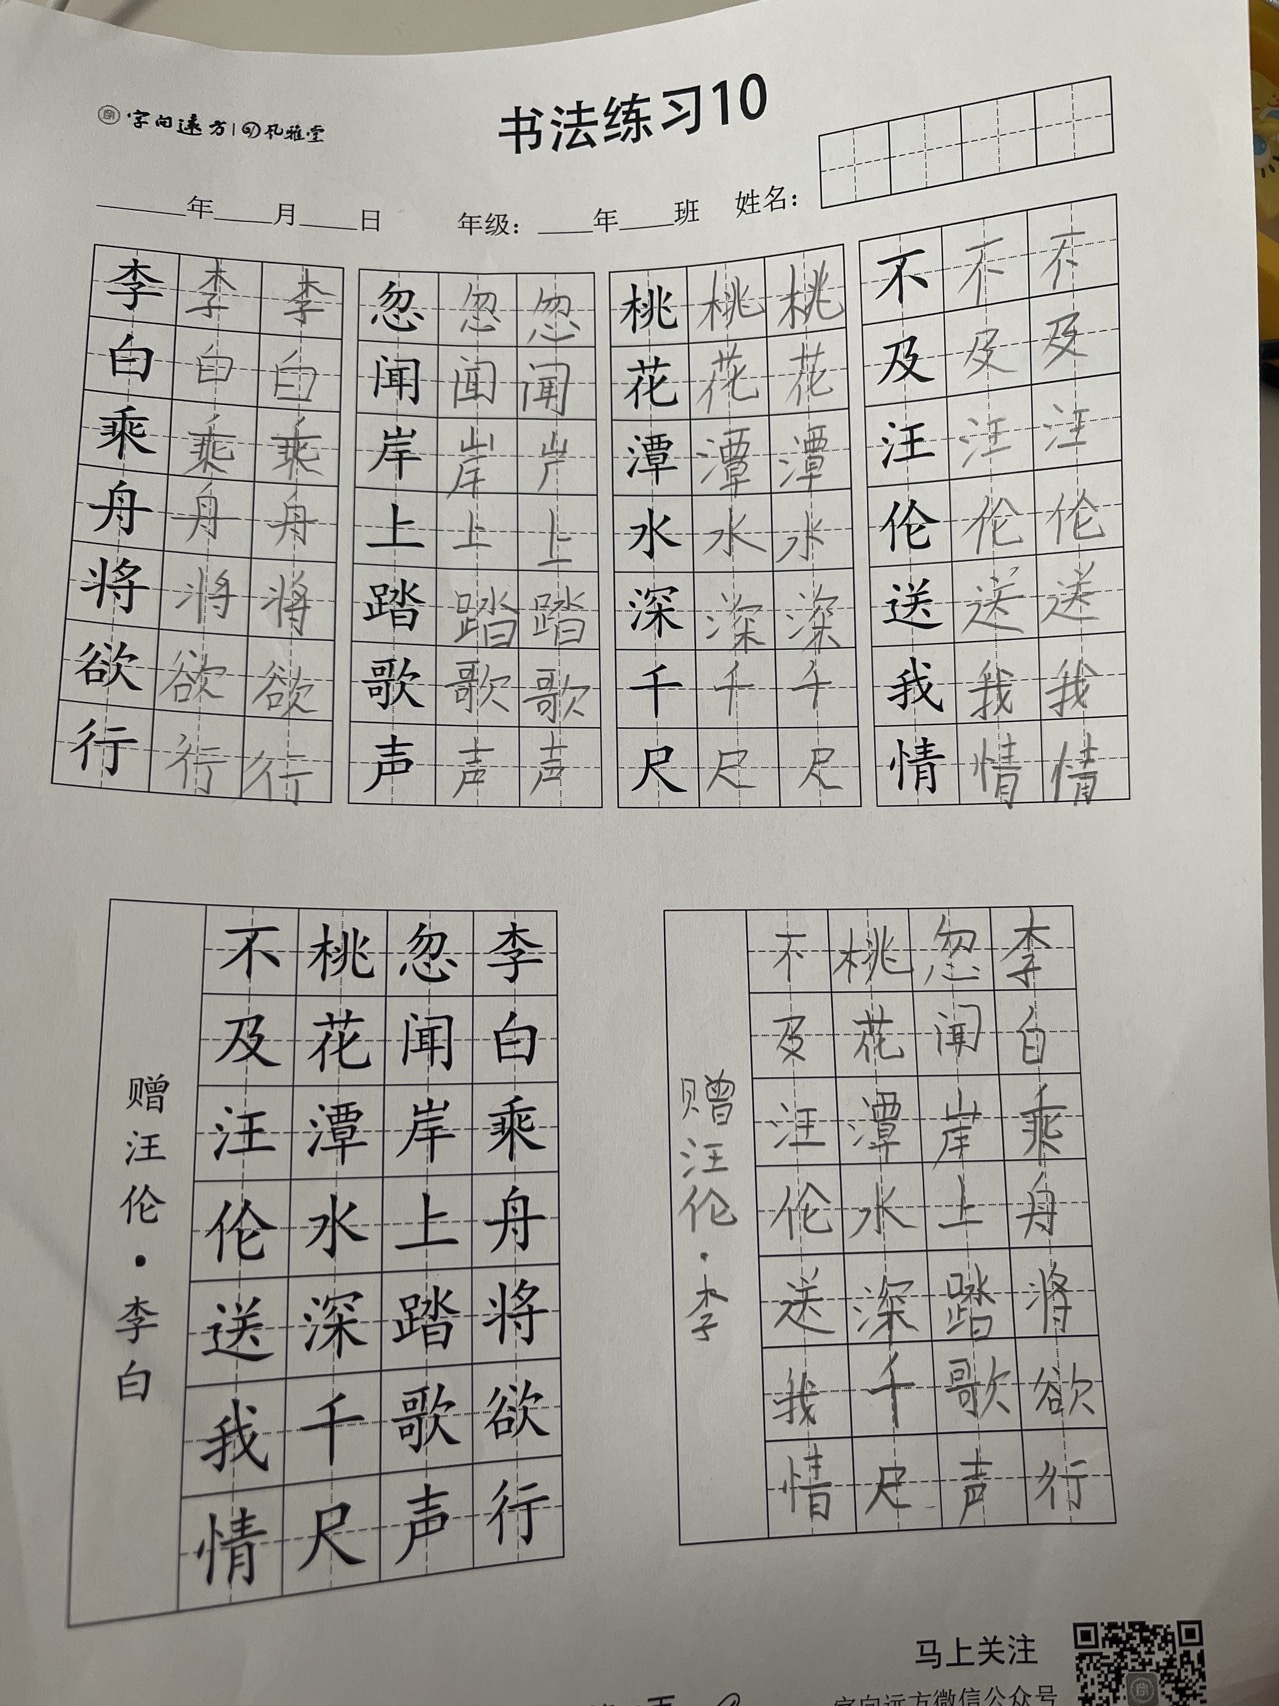 字向远方 孔雅堂
书法练习10
年 月 日 年级： 年 班 姓名：
李李李
白白白
乘乘乘
舟舟舟
将将将
欲欲欲
行行行
忽忽忽
闻闻闻
岸岸岸
上上上
踏踏踏
歌歌歌
声声声
桃桃桃
花花花
潭潭潭
水水水
深深深
千千千
尺尺尺
不不不
及及及
汪汪汪
伦伦伦
送送送
我我我
情情情
李白乘舟将欲行
忽闻岸上踏歌声
桃花潭水深千尺
不及汪伦送我情
赠汪伦·李白
李白乘舟将欲行
忽闻岸上踏歌声
桃花潭水深千尺
不及汪伦送我情
赠汪伦·李
马上关注
字向远方微信公众号